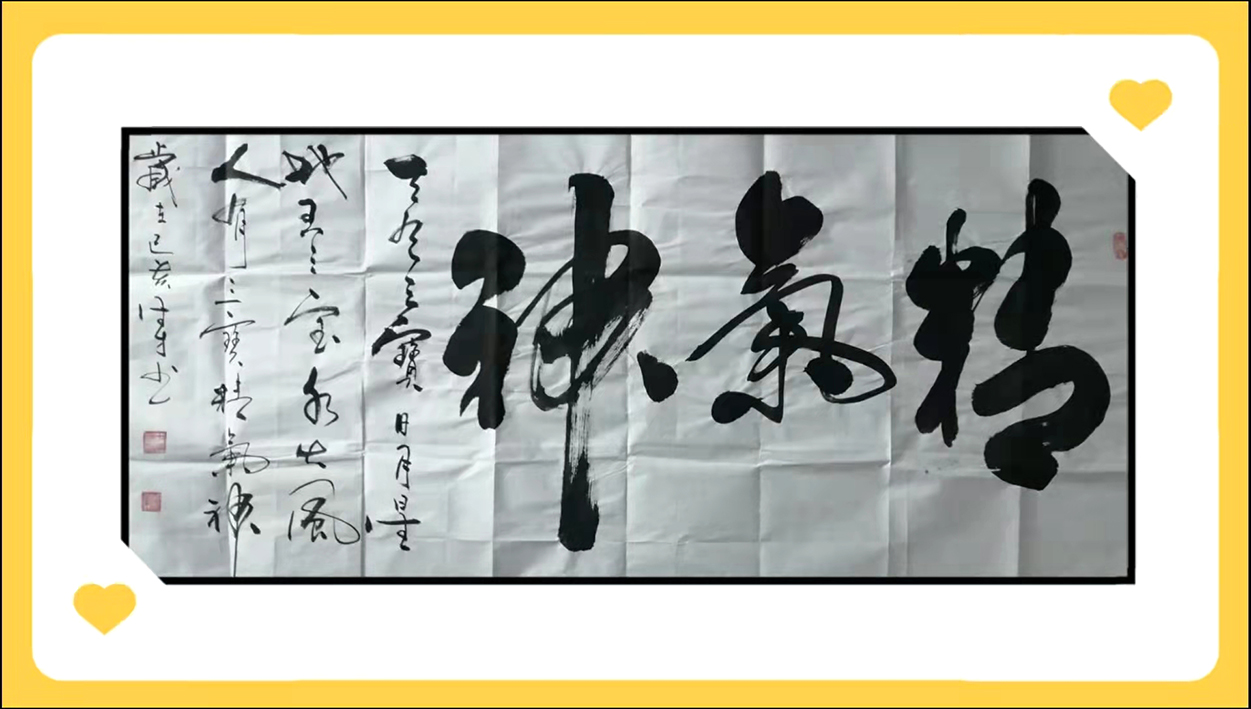 精氣神
天有三寶日月星
地有三宝水火风
人有三寶精氣神
歲在己亥
书